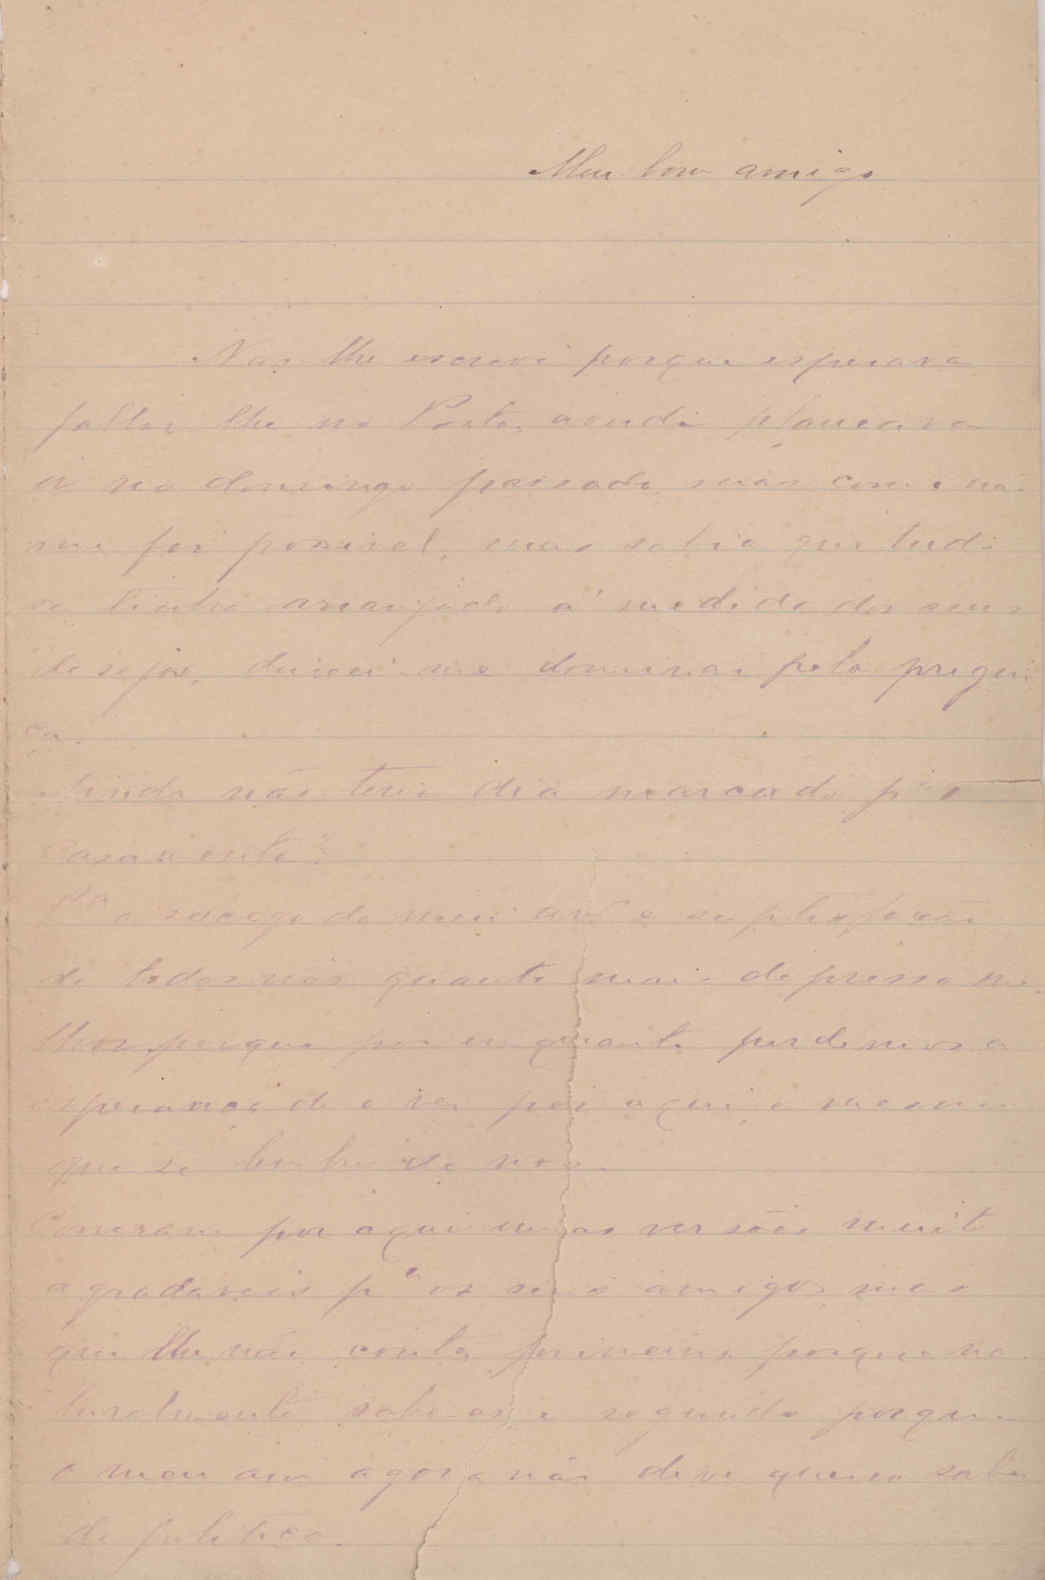 Meu bom amigo
Não lhe escrevi porque esperava
fallar lhe no Porto, aonde planeava
ir no domingo passado, mas como não
me foi possivel, mas sabia que tudo
se tinha arranjado á medida dos seus
desejos, deixei-me dominar pela pregui
ça.
Ainda não tem dia marcado pª o
casamento?
Pª o socego do meu amº e
de todos nós quanto mais depressa me
lhor, porque por em quanto perdemos a
esperança de o ver por aqui e mesmo
que se lembre de nós.
Correram por aqui umas versões muito
agradaveis pª os seus amigos mas
que lhe não conto, primeiro porque na
turalmente sabe-as, e segundo porque
o meu amº agora não deve querer saber
de politica.